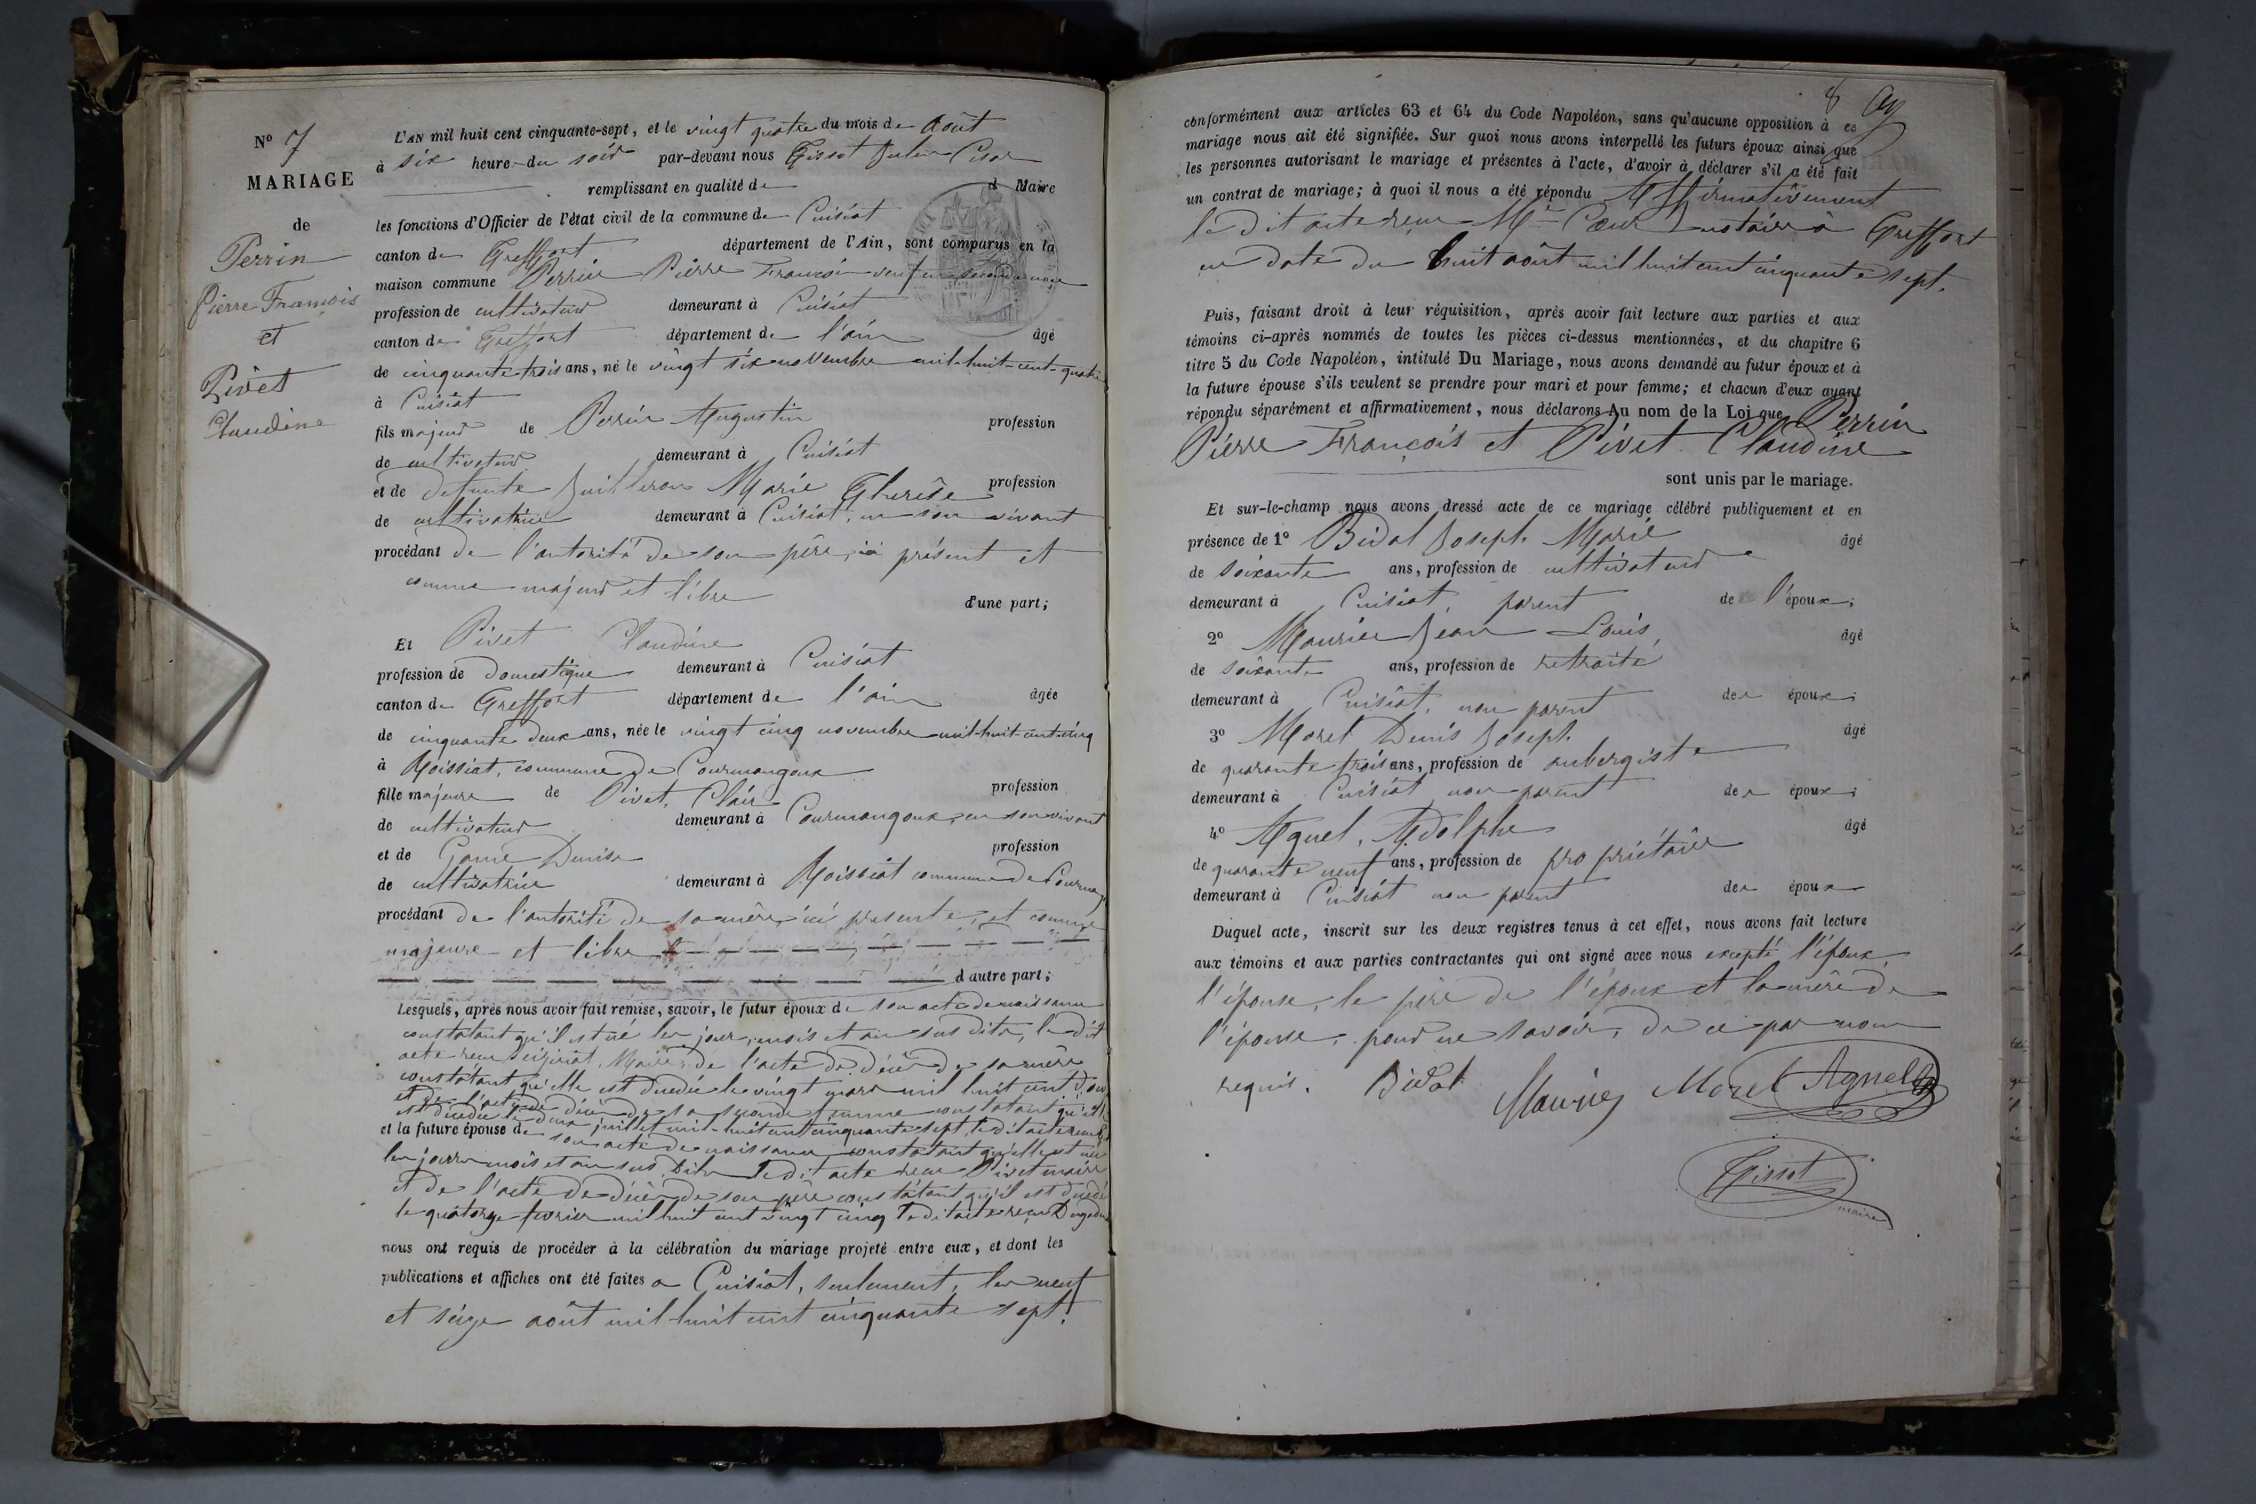 N° 7
MARIAGE
de
Perrin
Pierre François
et
Pivet
Claudine
L'AN mil huit cent cinquante-sept, et le vingt quatre du mois de Août
à six heure du soir par-devant nous Tissot Julien César
remplissant en qualité de d Maire
les fonctions d'Officier de l'état civil de la commune de Cuisiat
canton de Treffort département de l'Ain, sont comparus en la
maison commune Perrin Pierre François veuf en seconde noce
profession de cultivateur demeurant à Cuisiat
canton de Treffort département de l'ain âgé
de cinquante trois ans, né le vingt six novembre mil-huit-cent-quatre
à Cuisiat
fils majeur de Perrin Augustin profession
de cultivateur demeurant à Cuisiat
et de défunte Guilleron Marie Thérèse profession
de cultivatrice demeurant à Cuisiat, en son vivant
procédant de l'autorité de son père, ici présent et
comme majeur et libre d'une part;
Et Pivet Claudine
profession de domestique demeurant à Cuisiat
canton de Treffort département de l'ain âgée
de cinquante deux ans, née le vingt cinq novembre mil-huit-cent-cinq
à Roissiat, commune de Courmangoux
fille majeure de Pivet, Clair profession
de cultivateur demeurant à Courmangoux, en son vivant
et de Denise profession
de cultivatrice demeurant à Roissiat commune de Courmang
procédant de l'autorité de sa mère, ici présente, et comme
majeure et libre
d'autre part;
Lesquels, après nous avoir fait remise, savoir, le futur époux de son acte de naissance
constatant qu'il est né les jour, mois et an sus dits, le dit
acte reçu Maire, de l'acte de décès de sa mère
constatant qu'elle est décédée le vingt mars mil huit cent
et de l'acte de décès de sa seconde femme constatant qu'elle
est décédée le deux juillet mil-huit cent cinquante sept, le dit acte reçu
et la future épouse de son acte de naissance constatant qu'elle est née
les jour mois et an sus dits le dit acte reçu Pivet maire
et de l'acte de décès de son père constatant qu'il est décédé
le quatorze fevrier mil huit cent vingt cinq le dit acte reçu
nous ont requis de procéder à la célébration du mariage projeté entre eux, et dont les
publications et affiches ont été faites à Cuisiat, seulement, les neuf
et seize août mil-huit cent cinquante sept.
8
conformément aux articles 63 et 64 du Code Napoléon, sans qu'aucune opposition à ce
mariage nous ait été signifiée. Sur quoi nous avons interpellé les futurs époux ainsi que
les personnes autorisant le mariage et présentes à l'acte, d'avoir à déclarer s'il a été fait
un contrat de mariage; à quoi il nous a été répondu Affirmativement
le dit acte reçu Me Cœur notaire à Treffort
en date du huit août mil huit cent cinquante sept.
Puis, faisant droit à leur réquisition, après avoir fait lecture aux parties et aux
témoins ci-après nommés de toutes les pièces ci-dessus mentionnées, et du chapitre 6
titre 5 du Code Napoléon, intitulé Du Mariage, nous avons demandé au futur époux et à
la future épouse s'ils veulent se prendre pour mari et pour femme; et chacun d'eux ayant
répondu séparément et affirmativement, nous déclarons Au nom de la Loi que Perrin
Pierre François et Pivet Claudine
sont unis par le mariage.
Et sur-le-champ nous avons dressé acte de ce mariage célébré publiquement et en
présence de 1° Bidal Joseph Marie âgé
de soixante ans, profession de cultivateur
demeurant à Cuisiat, parent de l'époux;
2° Maurier Jean Louis, âgé
de soixante ans, profession de retraité
demeurant à Cuisiat, non parent des époux;
3° Morel Denis Joseph âgé
de quarante trois ans, profession de aubergiste
demeurant à Cuisiat non parent des époux;
4° Agnel, Adolphe âgé
de quarante neuf ans, profession de propriétaire
demeurant à Cuisiat non parent des époux
Duquel acte, inscrit sur les deux registres tenus à cet effet, nous avons fait lecture
aux témoins et aux parties contractantes qui ont signé avec nous excepté l'époux,
l'épouse, le père de l'époux et la mère de
l'épouse, pour ne savoir, de ce par nous
requis. Bidal Maurier Morel Agnel
Tissot
maire